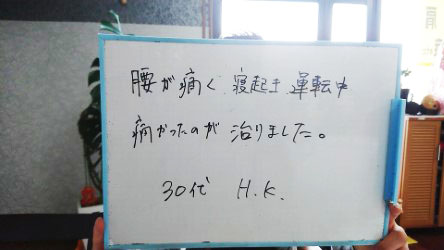 腰が痛く 寝起き 運転中
痛かったのが 治りました。
30代 H.K.
肩